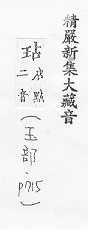 精嚴新集大藏音
玷占點
二音
(玉部·p715)